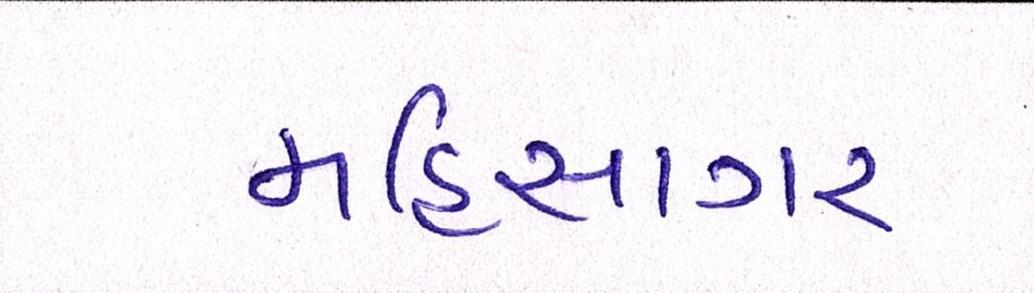 મહિસાગર